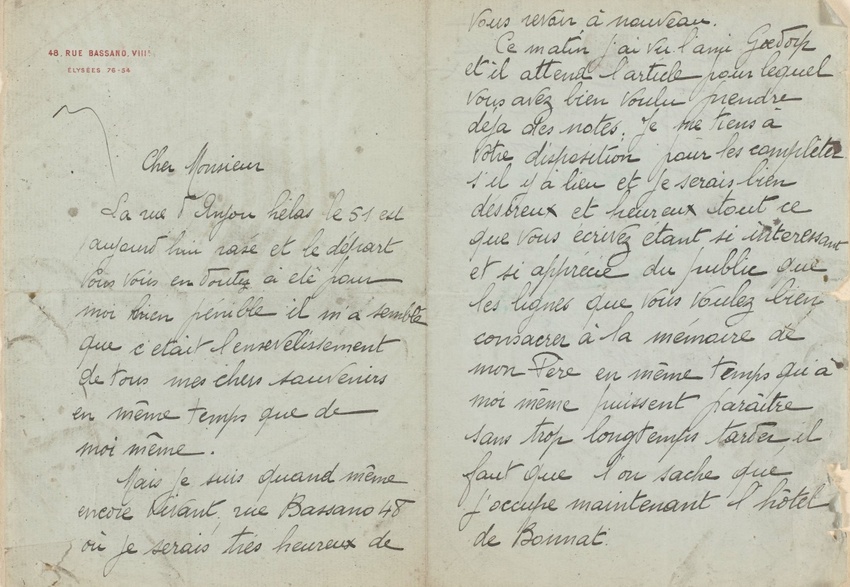 48, RUE BASSANO, VIIIE
ÉLYSÉES 76-34
Cher Monsieur
La rue d'Anjou hélas le 51 est
aujourd'hui rasé et le départ
vous vous en doutez a été pour
moi bien pénible il m'a semblé
que c'était l'ensevelissement
de tous mes chers souvenirs
en même temps que de
moi même.
Mais je suis quand même
encore vivant, rue Bassano 48
où je serais très heureux de
vous revoir à nouveau.
Ce matin j'ai vu l'ami Goedorp
et il attend l'article pour lequel
vous avez bien voulu prendre
déja des notes. Je me tiens à
votre disposition pour les compléter
s'il y a lieu et je serais bien
désireux et heureux tout ce
que vous écrivez étant si interessant
et si apprécié du public que
les lignes que vous voulez bien
consacrer à la mémoire de
mon Père en même temps qu'à
moi même puissent paraitre
sans trop longtemps tarder, il
faut que l'on sache que
j'occupe maintenant l'hôtel
de Bonnat.